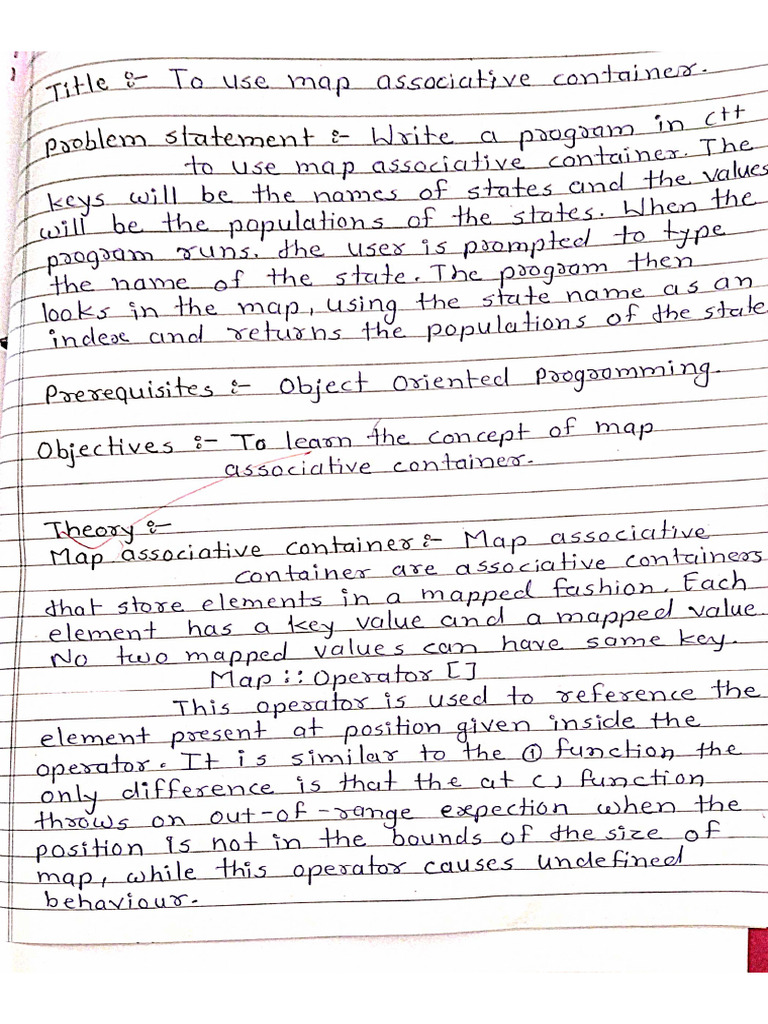 Title :- To use map associative container.
Problem statement :- Write a program in C++
to use map associative container. The
keys will be the names of states and the values
will be the populations of the states. When the
program runs. the user is prompted to type
the name of the state. The program then
looks in the map, using the state name as an
index and returns the populations of the state
Prerequisites :- Object Oriented Programming.
Objectives :- To learn the concept of map
associative container.
Theory :-
Map associative container :- Map associative
container are associative containers
that store elements in a mapped fashion. Each
element has a key value and a mapped value
No two mapped values can have same key.
Map :: Operator []
This operator is used to reference the
element present at position given inside the
operator. It is similar to the ① function the
only difference is that the at () function
throws on out-of-range expection when the
position is not in the bounds of the size of
map, while this operator causes undefined
behaviour.